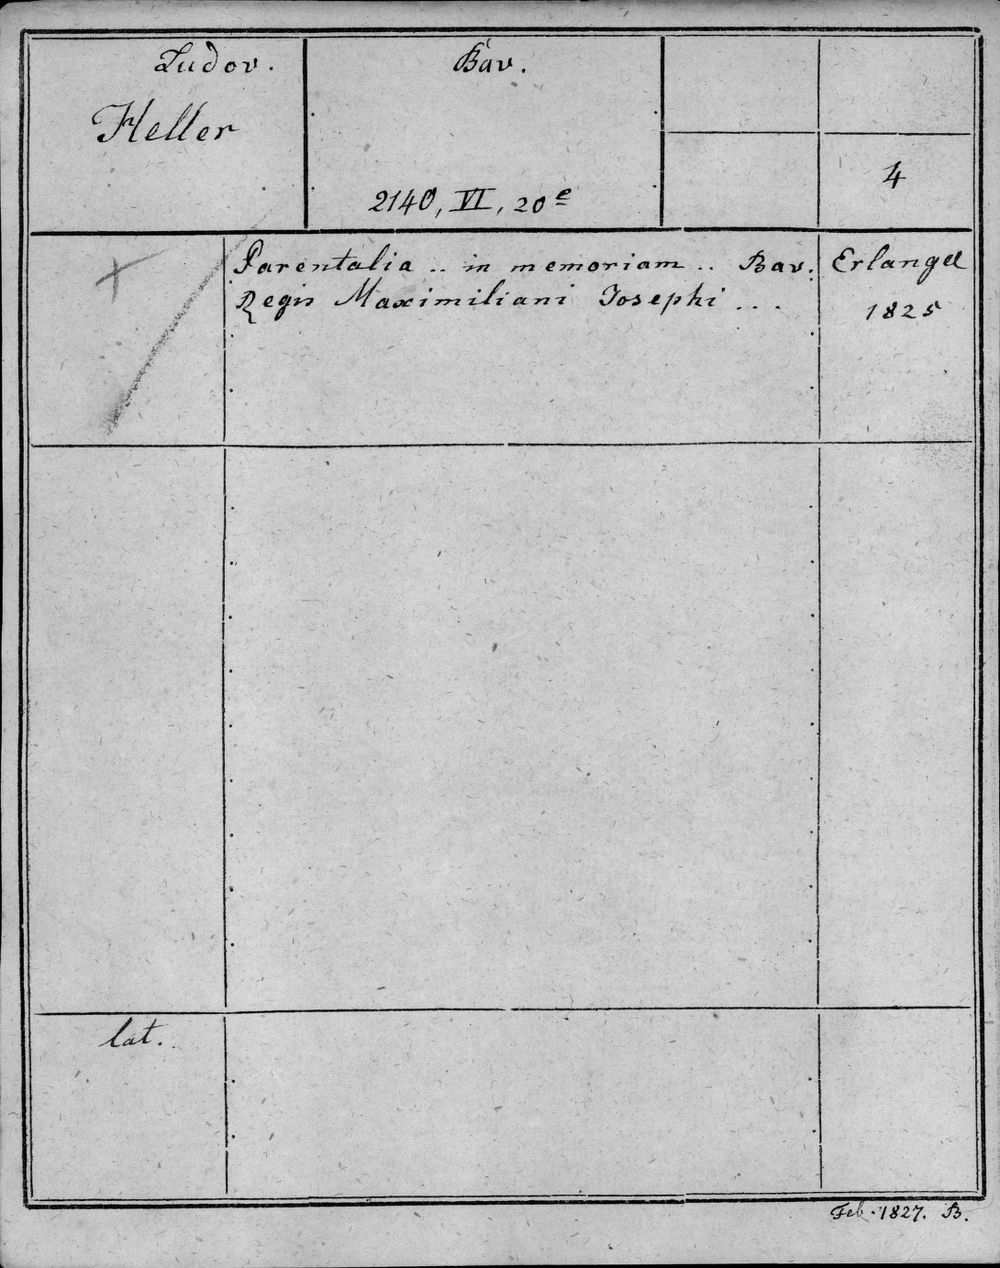 Ludov.
Heller
Bav.
2140, VI, 20e
4
Parentalia .. in memoriam .. Bav.
Regis Maximiliani Josephi ...
Erlangae
1825
lat.
Feb. 1827. B.